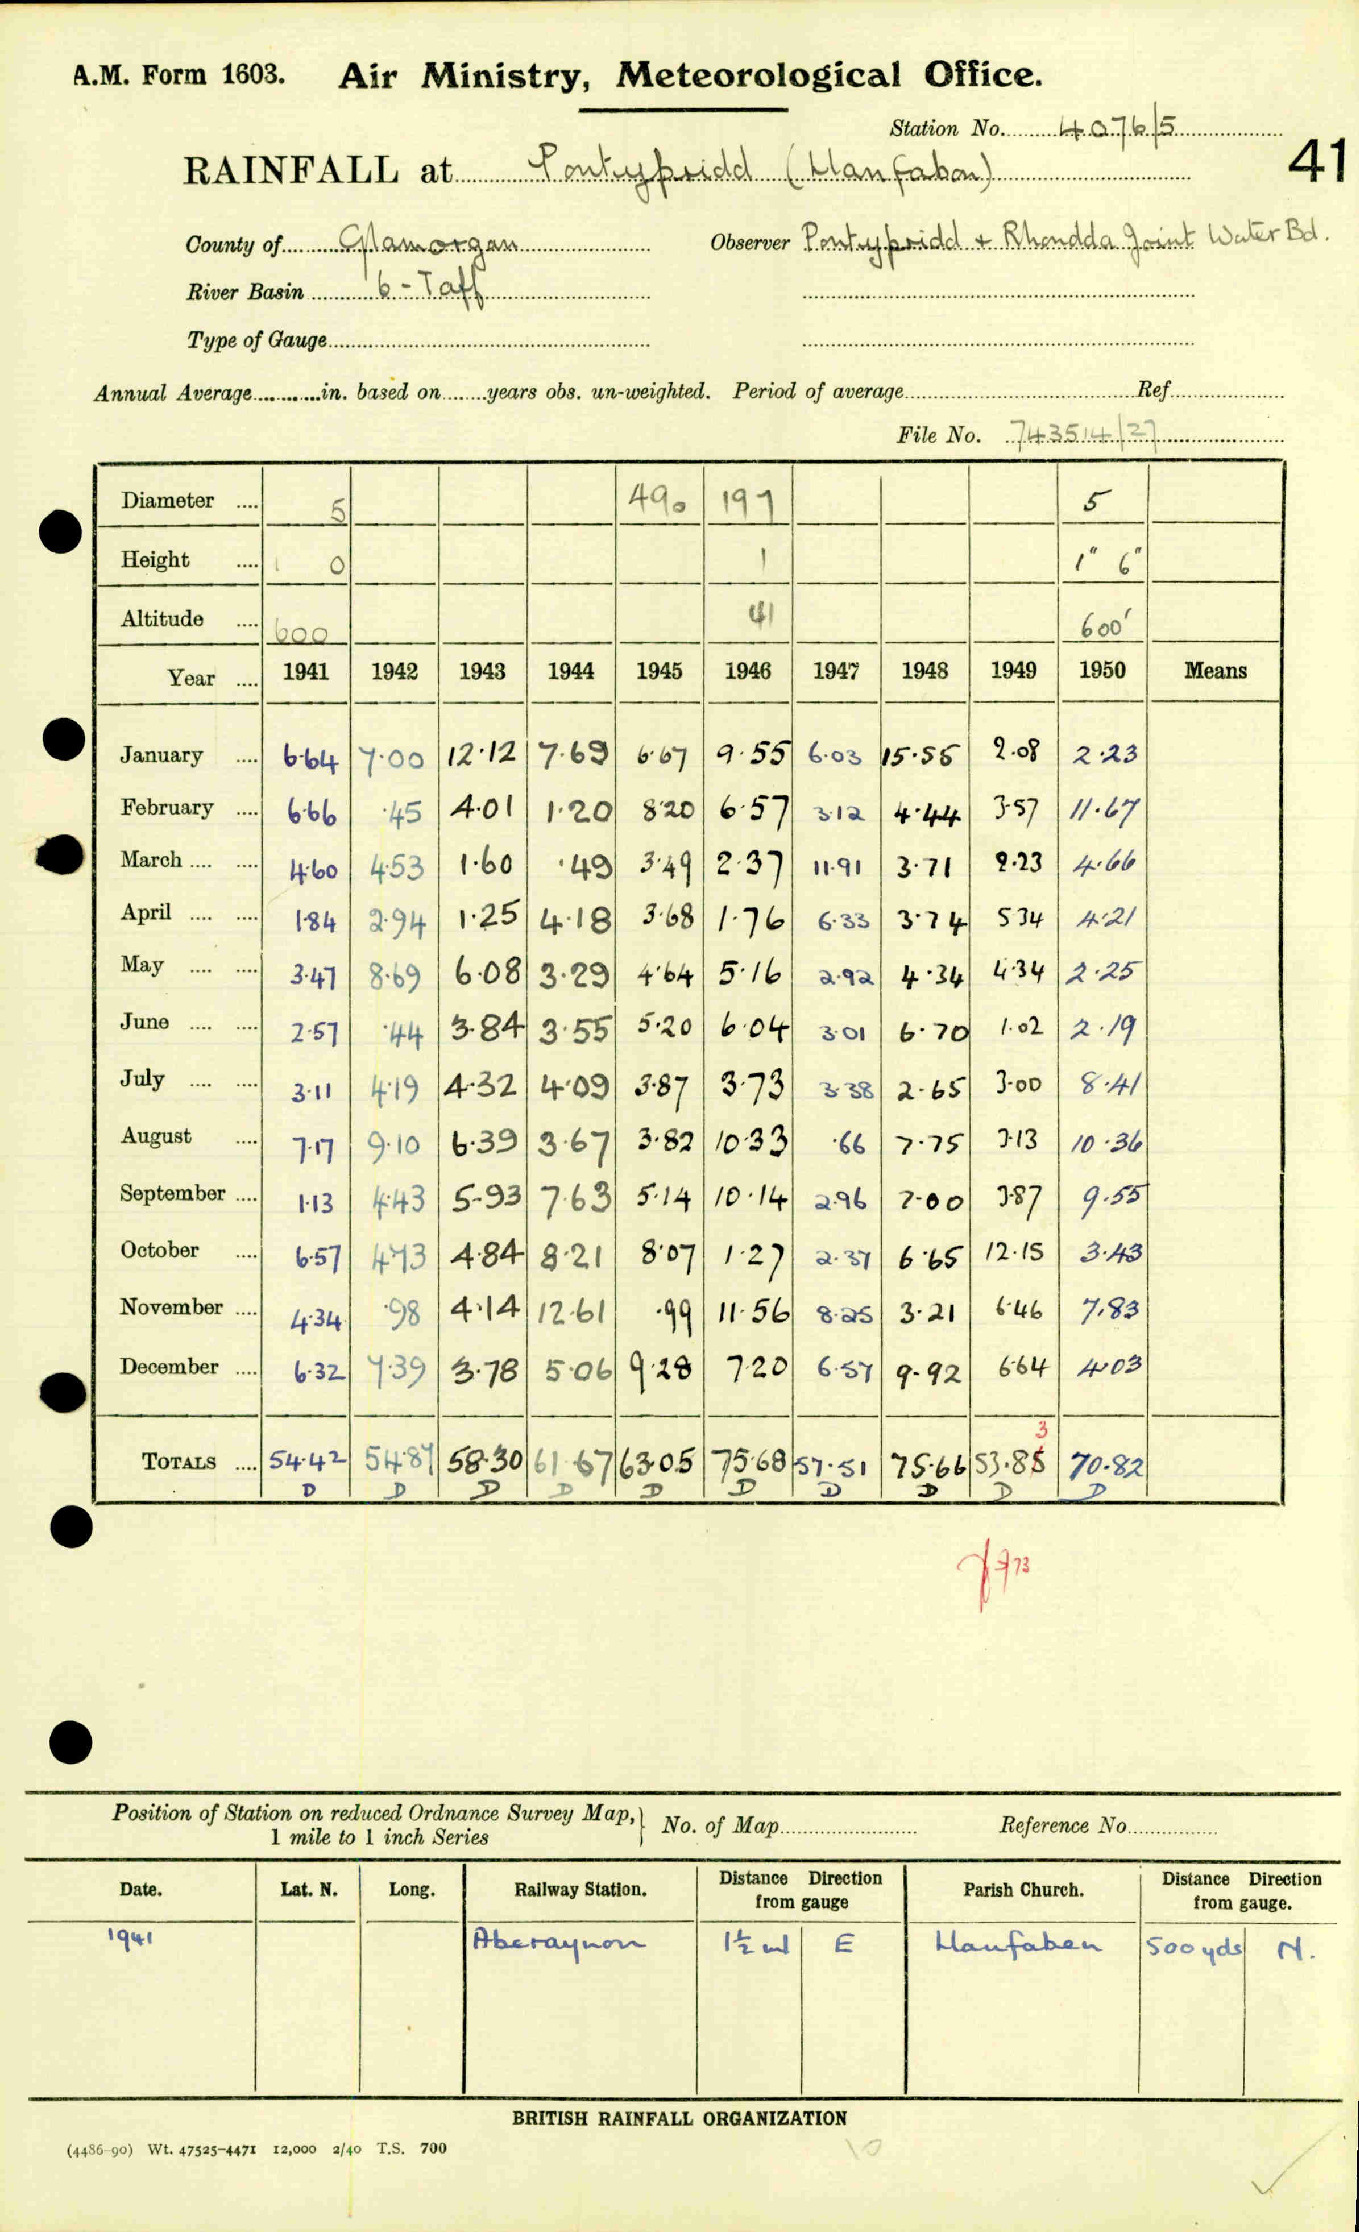 A.M. Form 1603. Air Ministry, Meteorological Office.
Station No. 4076/5
41
RAINFALL at Pontypridd (Llanfabon)
County of Glamorgan Observer Pontypridd + Rhondda Joint Water Bd.
River Basin 6 - Taff
Type of Gauge
Annual Average in. based on years obs. un-weighted. Period of average Ref
File No. 743514/27
Diameter 5 490 197 5
Height 0 1 1" 6"
Altitude 600 41 600'
Year 1941 1942 1943 1944 1945 1946 1947 1948 1949 1950 Means
January 6.64 7.00 12.12 7.69 6.67 9.55 6.03 15.55 2.08 2.23
February 6.66 .45 4.01 1.20 8.20 6.57 3.12 4.44 3.57 11.67
March 4.60 4.53 1.60 .49 3.49 2.37 11.91 3.71 2.23 4.66
April 1.84 2.94 1.25 4.18 3.68 1.76 6.33 3.74 5.34 4.21
May 3.47 8.69 6.08 3.29 4.64 5.16 2.92 4.34 4.34 2.25
June 2.57 .44 3.84 3.55 5.20 6.04 3.01 6.70 1.02 2.19
July 3.11 4.19 4.32 4.09 3.87 3.73 3.38 2.65 3.00 8.41
August 7.17 9.10 6.39 3.67 3.82 10.33 .66 7.75 3.13 10.36
September 1.13 4.43 5.93 7.63 5.14 10.14 2.96 7.00 3.87 9.55
October 6.57 4.73 4.84 8.21 8.07 1.27 2.37 6.65 12.15 3.43
November 4.34 .98 4.14 12.61 .99 11.56 8.25 3.21 6.46 7.83
December 6.32 7.39 3.78 5.06 9.28 7.20 6.57 9.92 6.64 4.03
3
TOTALS 54.42 54.87 58.30 61.67 63.05 75.68 57.51 75.66 53.85 70.82
D D D D D D D D D D
Position of Station on reduced Ordnance Survey Map, 1 mile to 1 inch Series No. of Map Reference No
Date. Lat. N. Long. Railway Station. Distance Direction from gauge Parish Church. Distance Direction from gauge.
1941 Aberaynon 1½ ml E Llanfaben 500 yds N.
BRITISH RAINFALL ORGANIZATION
(4486-90) Wt. 47525-4471 12,000 2/40 T.S. 700
10